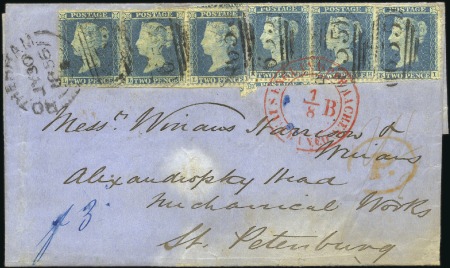 POSTAGE POSTAGE POSTAGE POSTAGE POSTAGE POSTAGE
TWO PENCE TWO PENCE TWO PENCE TWO PENCE TWO PENCE TWO PENCE
ROTHERHAM
1/8 B
Mess.rs Winans Harrison &
Winans
Alexandrofsky Head
Mechanical Works
St. Petersburg
f 3